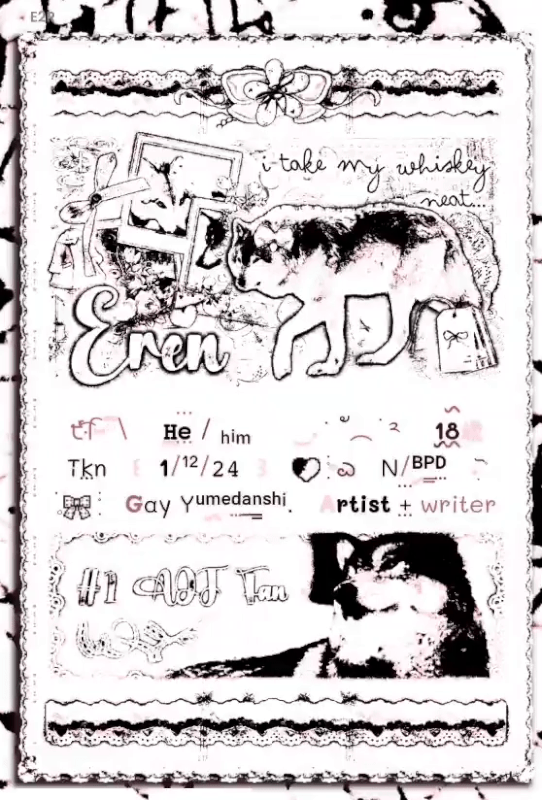 i take my whiskey
neat...
Eren
He / him 18
Tkn 1/12/24 N/BPD
Gay Yumedanshi. Artist + writer
#1 AOT Fan